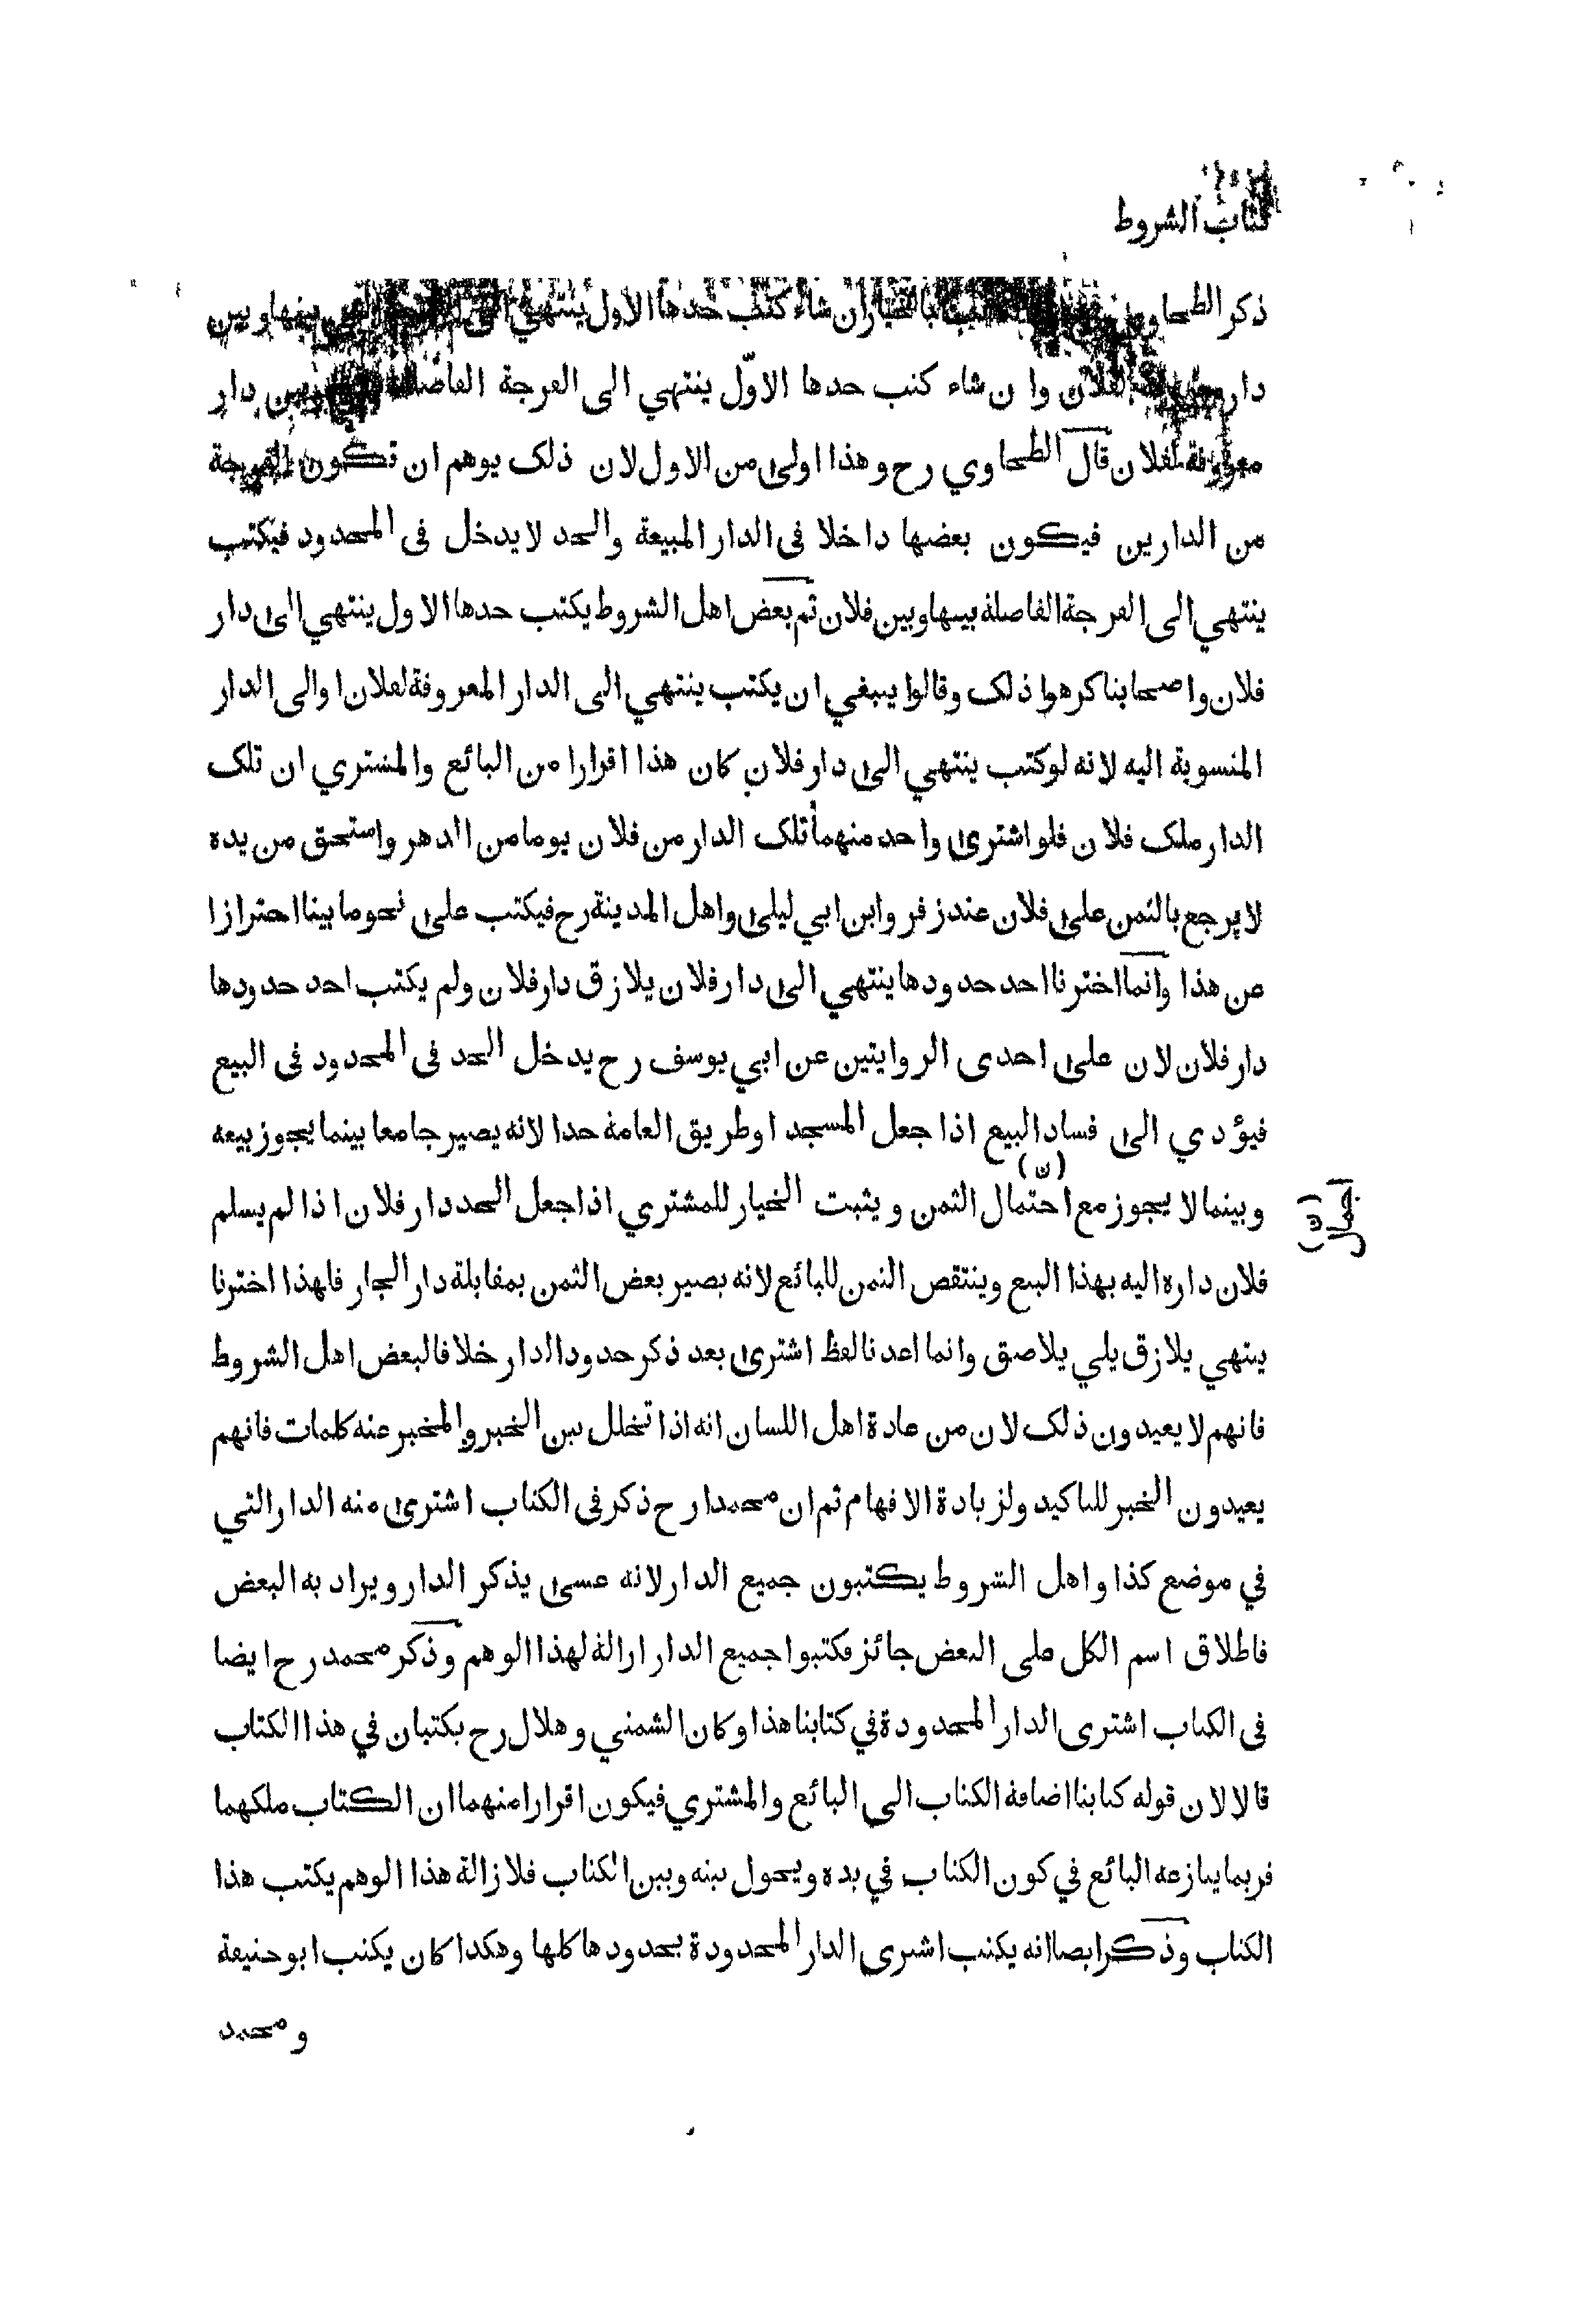 كتاب الشروط
ذكر الطحاوي بالخيار ان شاء كتب حدها الاول ينتهي الى التي بينها وبين
دار لفلان وان شاء كتب حدها الاوّل ينتهي الى الفرجة الفاصلة وبين دار
معروفة لفلان قال الطحاوي رح وهذا اولى من الاول لان ذلك يوهم ان تكون الفرجة
من الدارين فيكون بعضها داخلا فى الدار المبيعة والحد لا يدخل فى المحدود فيكتب
ينتهي الى الفرجة الفاصلة بينها وبين فلان ثم بعض اهل الشروط يكتب حدها الاول ينتهي الى دار
فلان واصحابنا كرهوا ذلك وقالوا ينبغي ان يكتب ينتهي الى الدار المعروفة لفلان او الى الدار
المنسوبة اليه لانه لو كتب ينتهي الى دار فلان كان هذا اقرارا من البائع والمشتري ان تلك
الدار ملك فلان فلو اشترى واحد منهما تلك الدار من فلان يوما من الدهر واستحق من يده
لا يرجع بالثمن على فلان عند زفر وابن ابي ليلى واهل المدينة رح فيكتب على نحو ما بينا احترازا
عن هذا وانما اخترنا احد حدودها ينتهي الى دار فلان يلازق دار فلان ولم يكتب احد حدودها
دار فلان لان على احدى الروايتين عن ابي يوسف رح يدخل الحد فى المحدود فى البيع
فيؤدي الى فساد البيع اذا جعل المسجد او طريق العامة حدا لانه يصير جامعا بينما يجوز بيعه
وبينما لا يجوز مع احتمال (ن) الثمن ويثبت الخيار للمشتري اذا جعل الحد دار فلان اذا لم يسلم
اجمال (ن)
فلان داره اليه بهذا البيع وينتقص الثمن للبائع لانه يصير بعض الثمن بمقابلة دار الجار فلهذا اخترنا
ينتهي يلازق يلي يلاصق وانما اعدنا لفظ اشترى بعد ذكر حدود الدار خلافا لبعض اهل الشروط
فانهم لا يعيدون ذلك لان من عادة اهل اللسان انه اذا تخلل بين الخبر والمخبر عنه كلمات فانهم
يعيدون الخبر للتاكيد ولزيادة الافهام ثم ان محمدا رح ذكر فى الكتاب اشترى منه الدار التي
في موضع كذا واهل الشروط يكتبون جميع الدار لانه عسى يذكر الدار ويراد به البعض
فاطلاق اسم الكل على البعض جائز فكتبوا جميع الدار ازالة لهذا الوهم وذكر محمد رح ايضا
فى الكتاب اشترى الدار المحدودة في كتابنا هذا وكان الشمني وهلال رح يكتبان في هذا الكتاب
قالا لان قوله كتابنا اضافة الكتاب الى البائع والمشتري فيكون اقرارا منهما ان الكتاب ملكهما
فربما ينازعه البائع في كون الكتاب في يده ويحول بينه وبين الكتاب فلازالة هذا الوهم يكتب هذا
الكتاب وذكر ايضا انه يكتب اشترى الدار المحدودة بحدودها كلها وهكذا كان يكتب ابو حنيفة
ومحمد